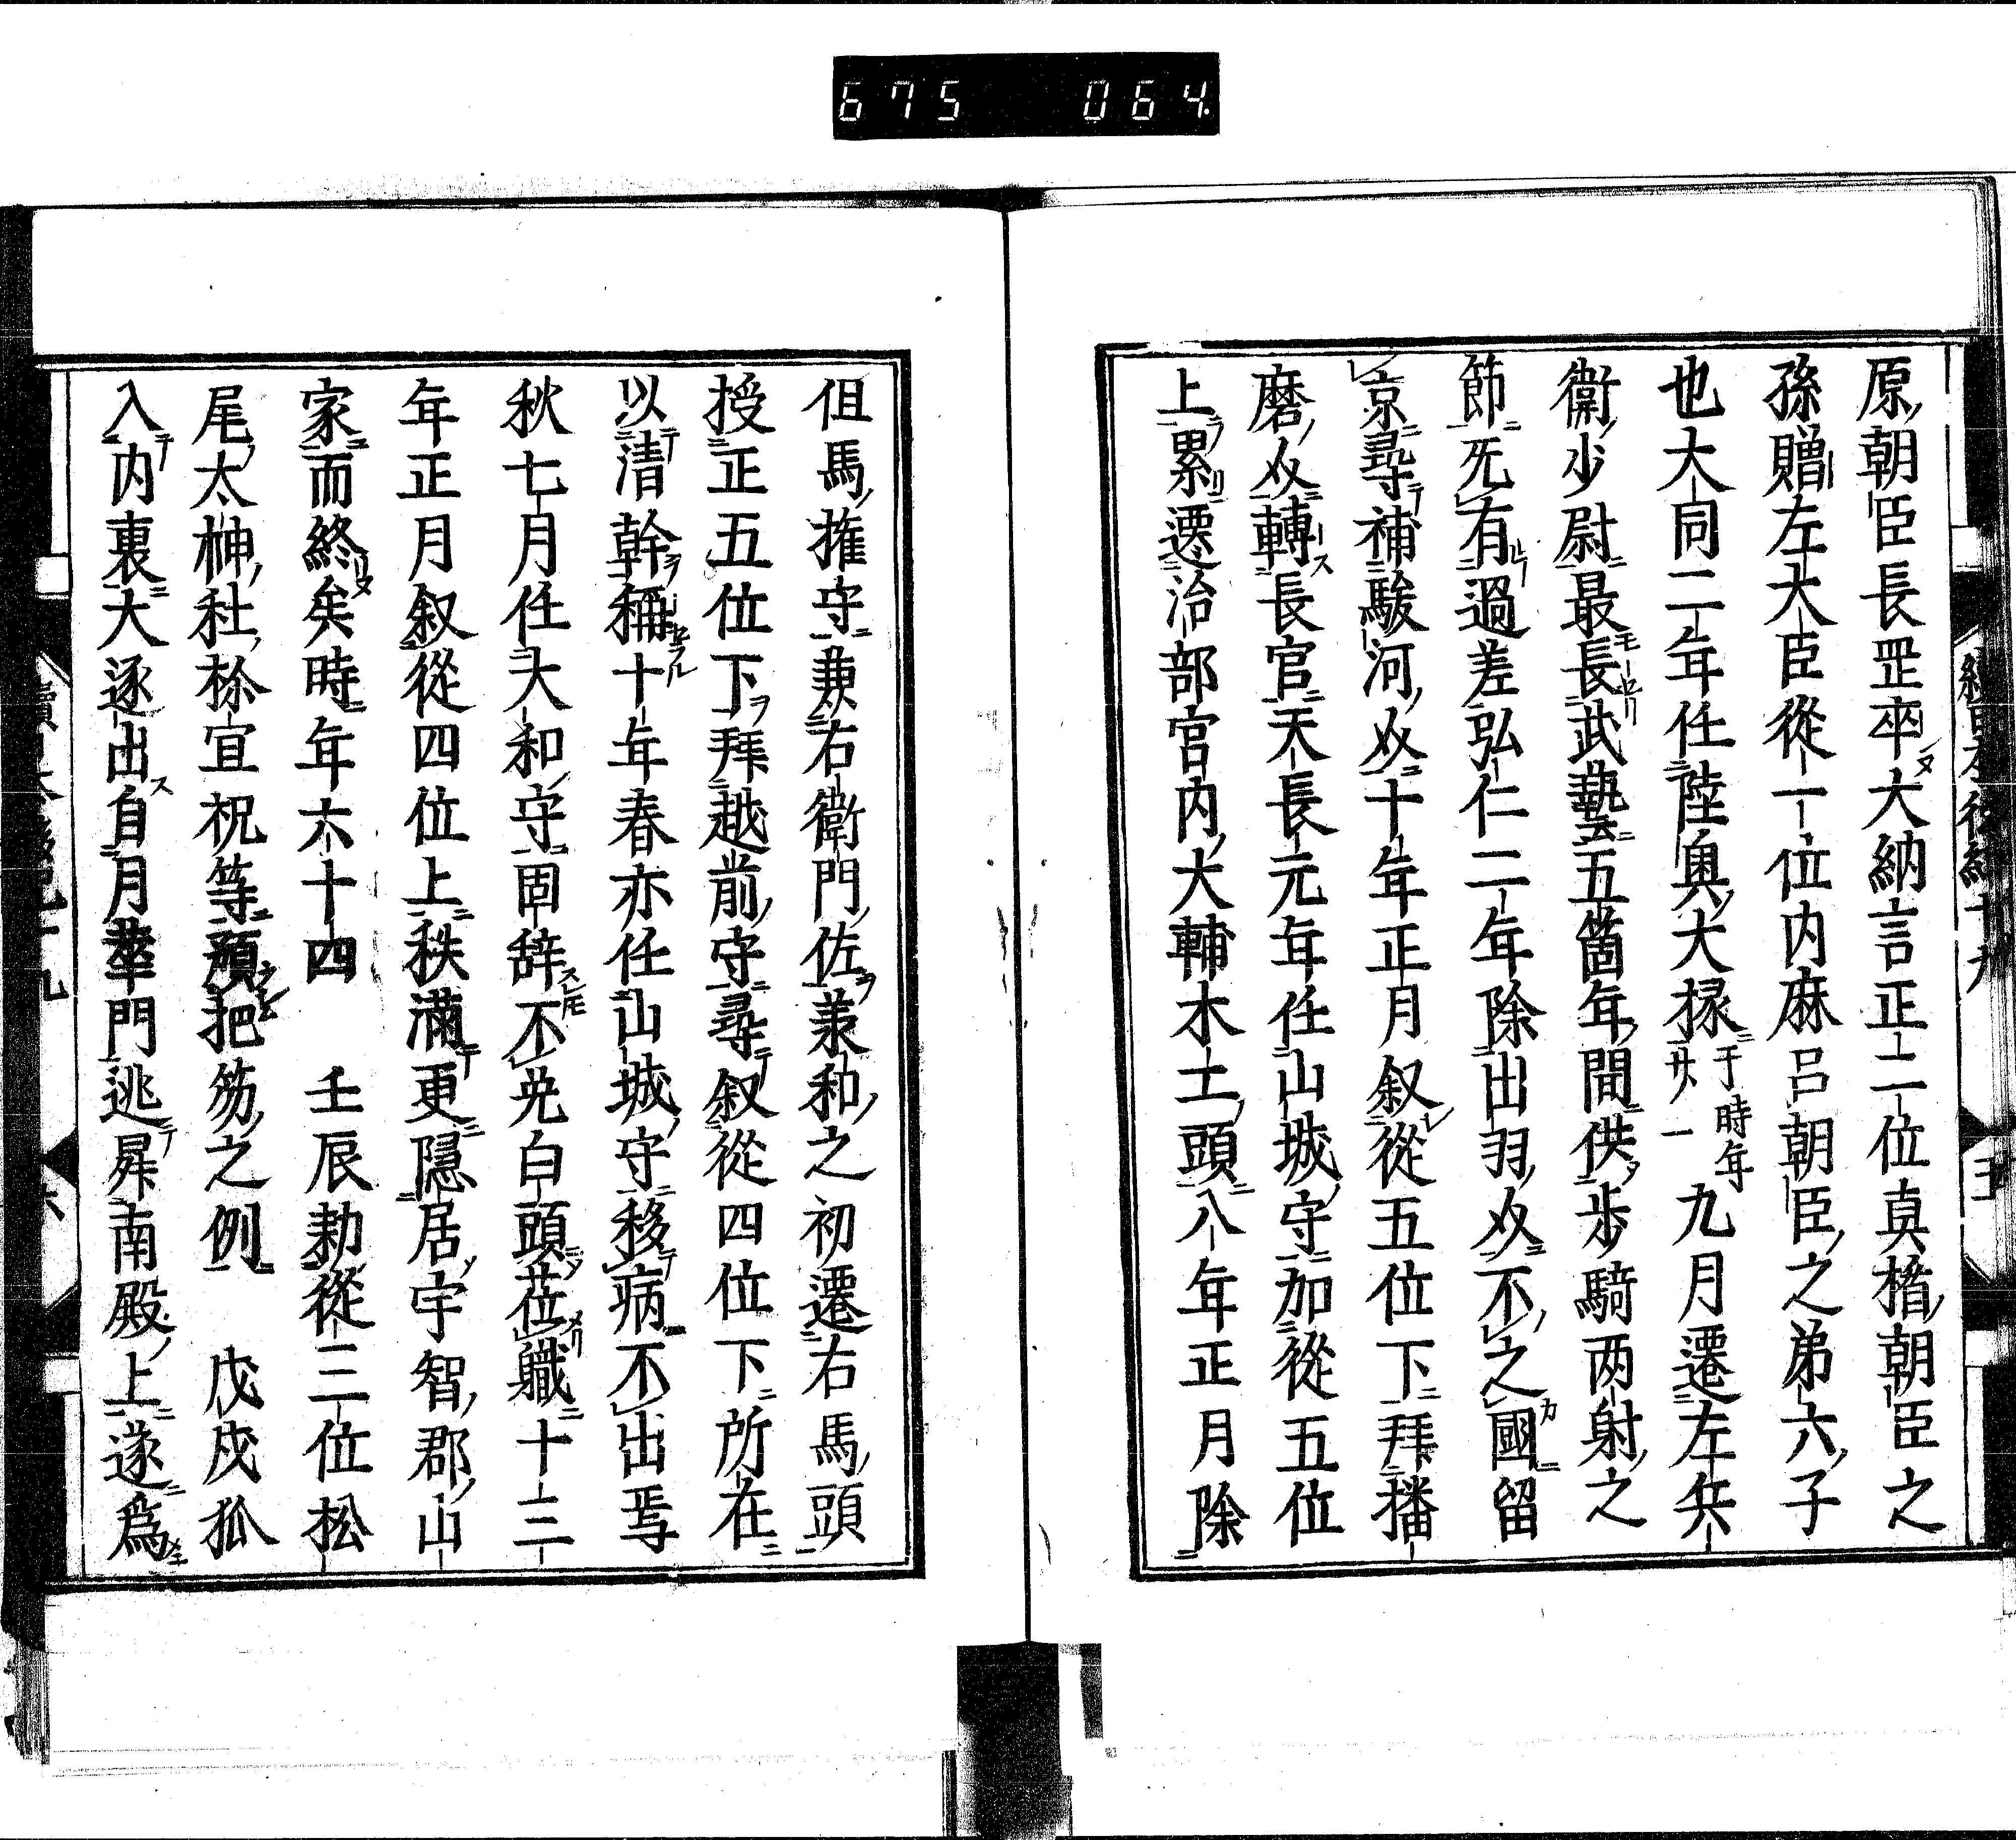 675 064
原朝臣長罡卒大納言正二位真楯朝臣之
孫贈左大臣從一位内麻呂朝臣之弟六子
也大同二年任陸奥大掾于時年廾一九月遷左兵
衞少尉最長武藝五箇年間供歩騎両射之
節旡有過差弘仁二年除出羽㕝不之國留
京尋補駿河㕝十年正月叙從五位下拜播
磨㕝轉長官天長元年任山城守加從五位
上累遷治部宮内大輔木工頭八年正月除
但馬權守兼右衞門佐羕和之初遷右馬頭
授正五位下拜越前守尋叙從四位下所在
以清幹稱十年春亦任山城守移病不出焉
秋七月任大和守固辞不免白頭莅職十三
年正月叙從四位上秩滿更隱居宇智郡山
家而終矣時年六十四　壬辰勑從三位松
尾太神社祢宜祝等預把笏之例　戊戌狐
入内裏大逐出自月華門逃昇南殿上遂爲